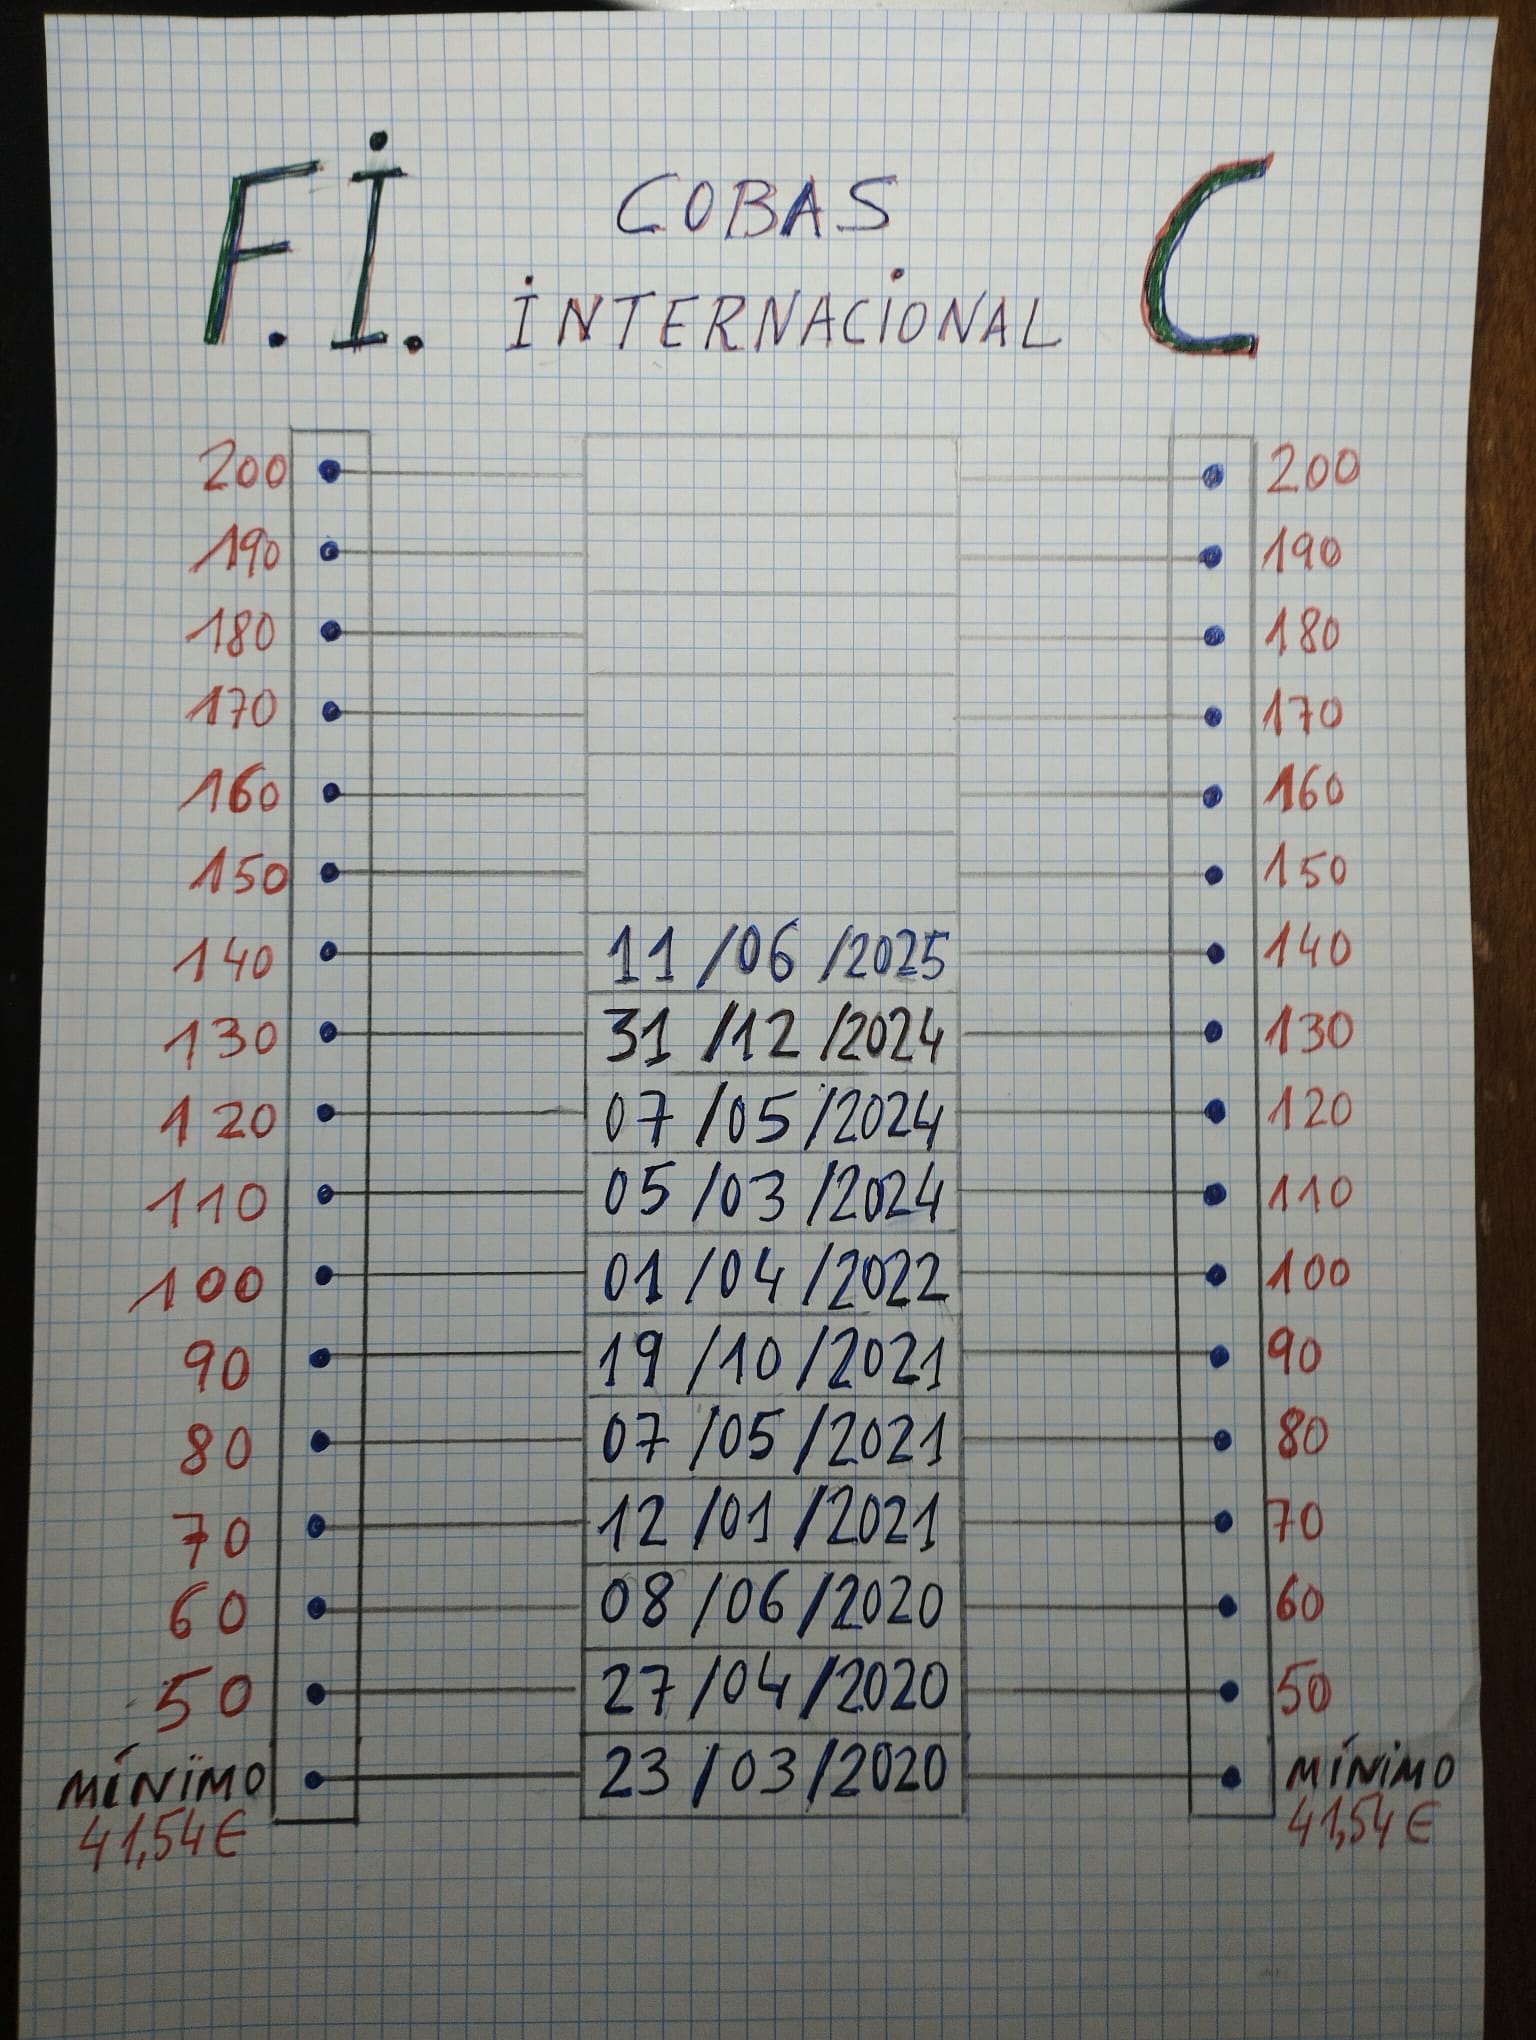 F.I. COBAS C
INTERNACIONAL
200 200
190 190
180 180
170 170
160 160
150 150
140 11/06/2025 140
130 31/12/2024 130
120 07/05/2024 120
110 05/03/2024 110
100 01/04/2022 100
90 19/10/2021 90
80 07/05/2021 80
70 12/01/2021 70
60 08/06/2020 60
50 27/04/2020 50
MÍNIMO 23/03/2020 MÍNIMO
41,54€ 41,54€